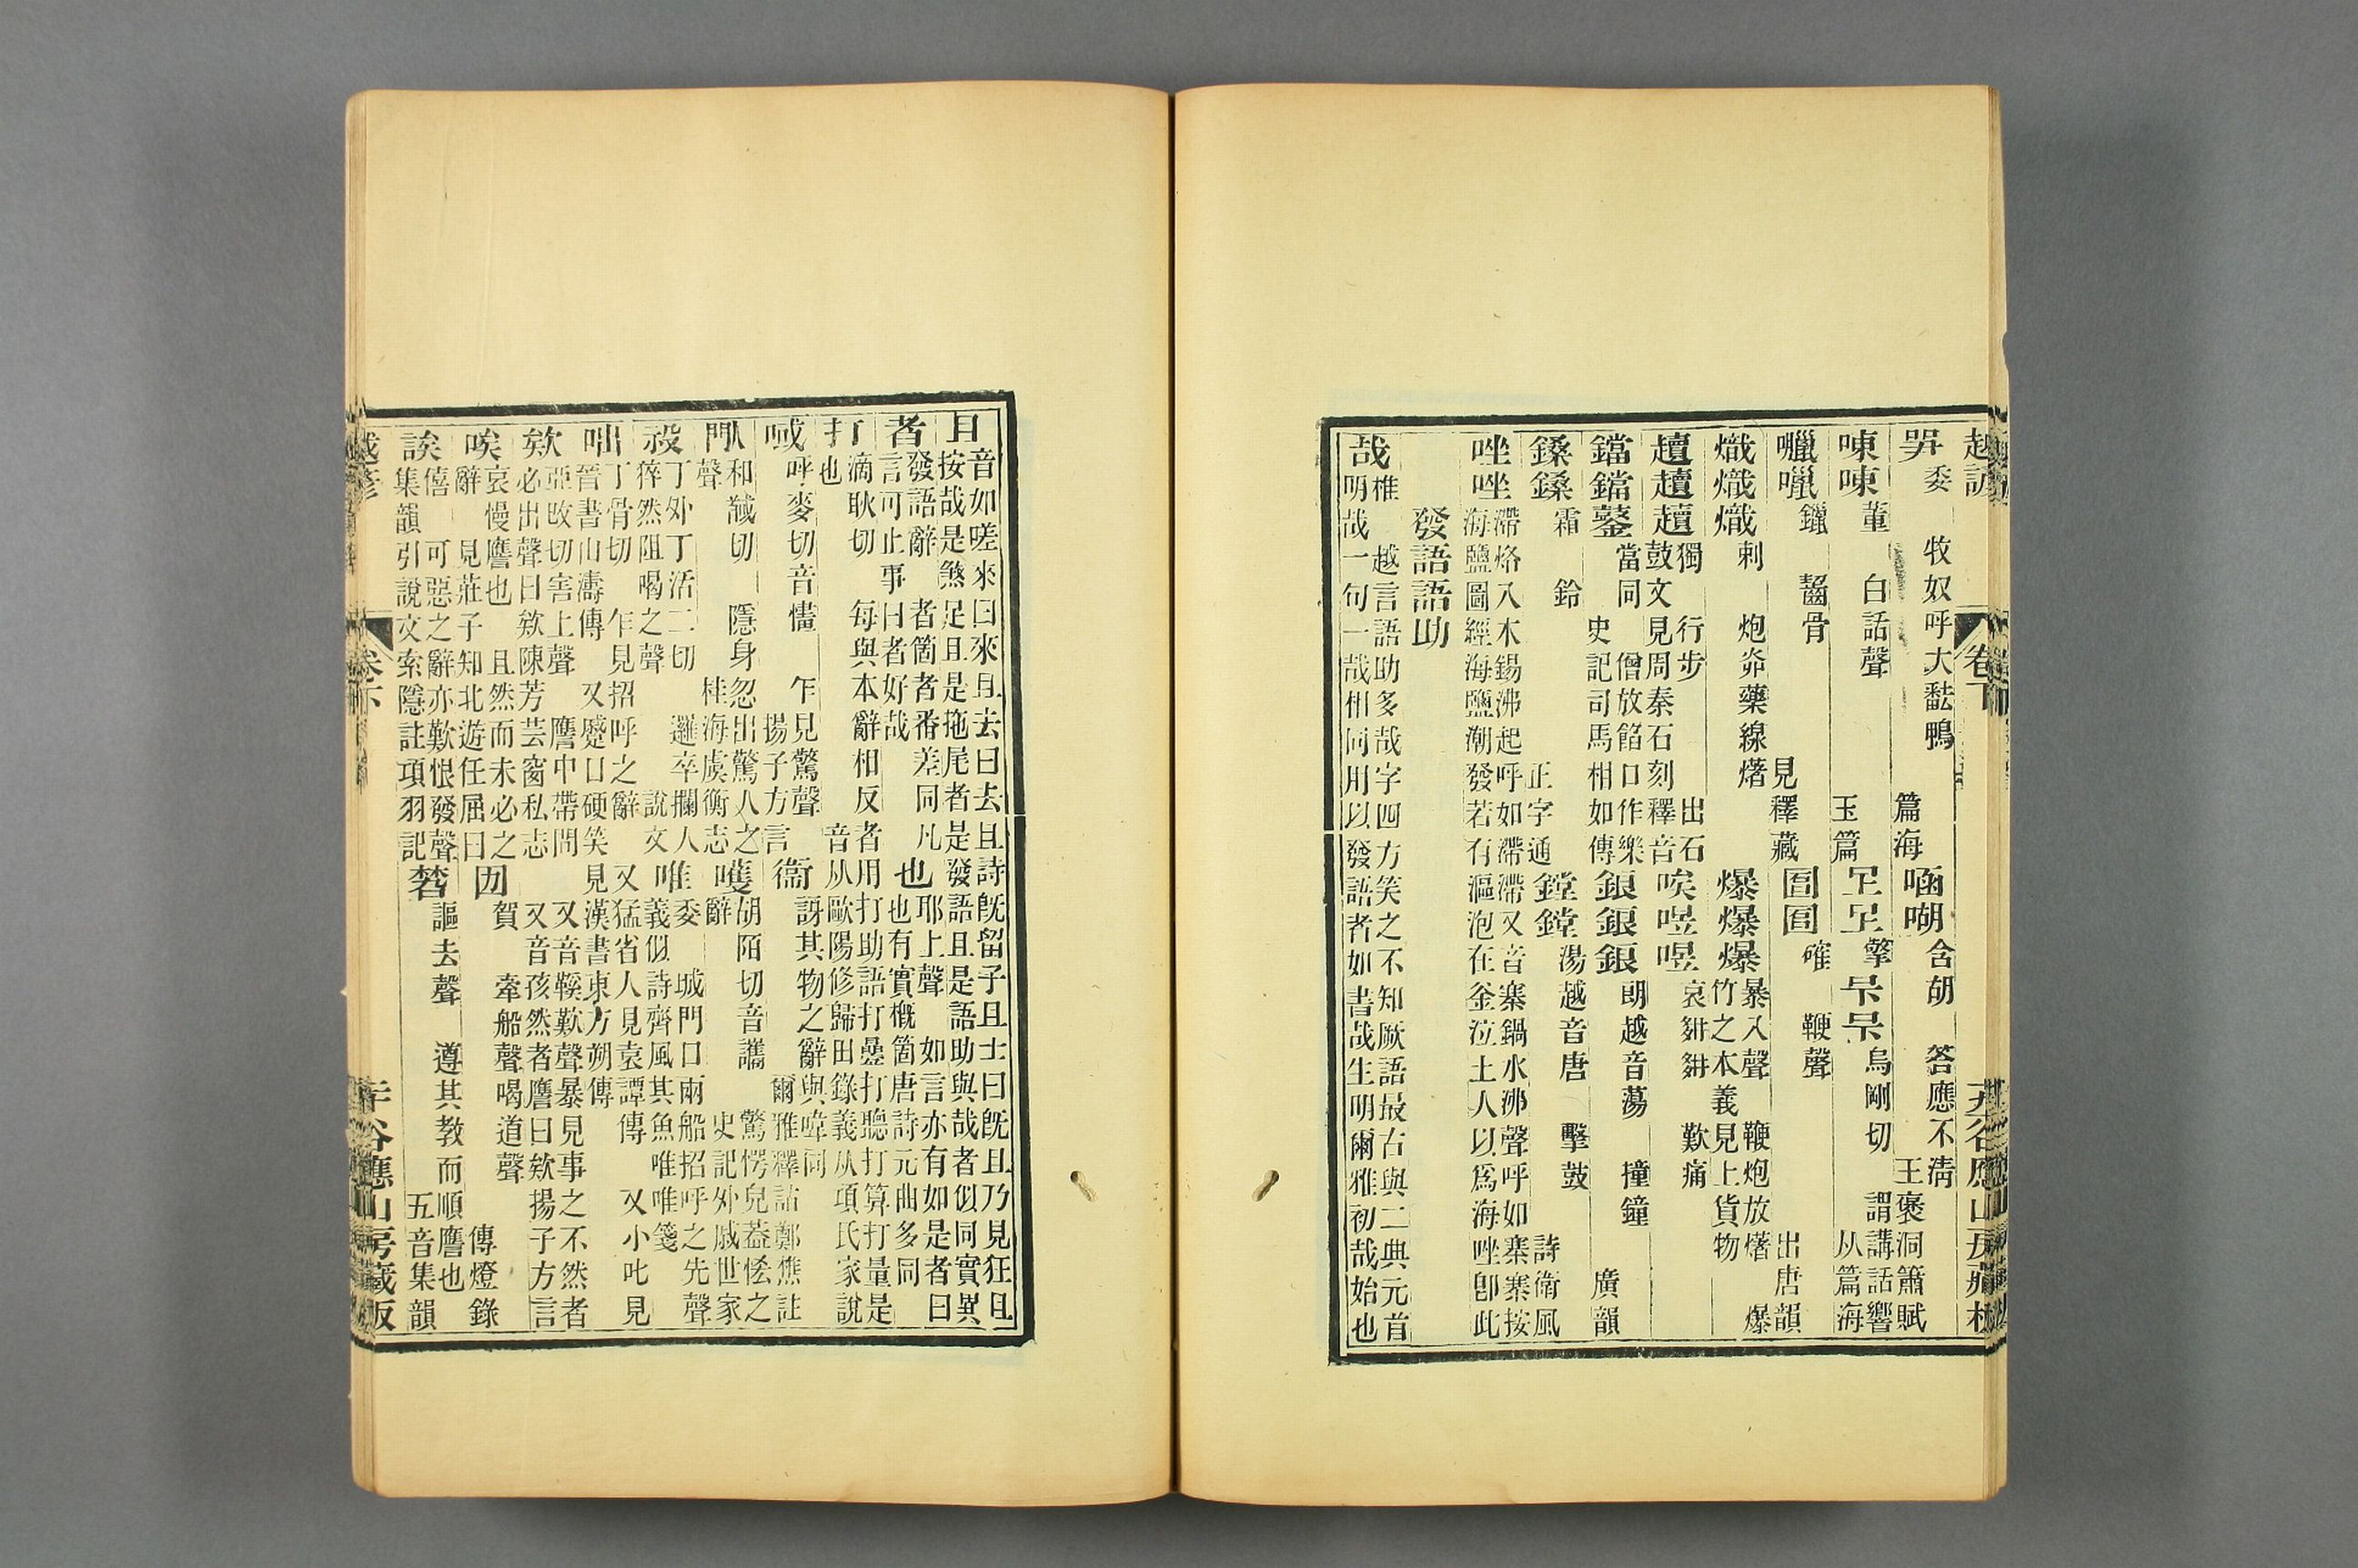 越諺 卷下
喌 委 牧奴呼大㽎鴨 篇海 㖤㗅 含胡 答應不淸 王褒洞簫賦
㖦㖦 董 白話聲 玉篇
烏剛切 謂講話響 从篇海
囒㘔 鑞 齧骨 見釋藏
確 鞭聲 出唐韻
熾熾熾 刺 炮炎藥線㷮
爆爆爆 暴入聲 鞭炮放㷮 爆竹之本義見上貨物
䟈䟈䟈 獨 行步 出石鼓文見周秦石刻釋音
唉㖶㖶 哀 歎痛
鐺鐺鼞 當同 僧放餡口作樂 史記司馬相如傳
鋃鋃鋃 朗越音蕩 撞鐘 廣韻
鎟鎟 霜 鈴 正字通 鏜鏜 湯越音唐 擊鼓 詩衛風
㘸㘸 滯烙入木錫沸起呼如滯滯又音寨鍋水沸聲呼如寨寨按
海鹽圖經海鹽潮發若有漚泡在釜泣土人以爲海㘸卽此
發語語助
哉 椎 越言語助多哉字四方笑之不知厥語最古與二典元首
明哉一句一哉相同用以發語者如書哉生明爾雅初哉始也
且 音如嗟來曰來且去曰去且詩旣留子且士曰旣且乃見狂且
按哉是煞足且是拖尾者是發語且是語助與哉者似同實異
者 發語辭 者箇者番差同 凡言可止事曰者好哉
也 耶上聲 如言亦有如是者曰也也有實槪箇唐詩元曲多同
打 滴耿切 每與本辭相反者用打助語打疊打聽打算打量是也
音从歐陽修歸田錄義从項氏家說
㖪 呼麥切音㦎 乍見驚聲 揚子方言
衞 訝其物之辭與㖞同 爾雅釋詁鄭樵註
䦘 和馘切 隱身忽出驚人之聲 桂海虞衡志
嚄 胡陌切音䜕 驚愕皃葢怪之辭 史記外戚世家
祋 丁外丁活二切 邏卒攔人猝然阻喝之聲 說文
唯 委 城門口兩船招呼之先聲 義似詩齊風其魚唯唯箋
咄 丁骨切 乍見招呼之辭 又猛省人見袁譚傳 又小叱見
晉書山濤傳 又蹙口硬笑見漢書東方朔傳
欸 亞改切害上聲 譍中帶問 又音鞵歎聲暴見事之不然者
必出聲曰欸陳芳芸窗私志 又音孩然者譍曰欸揚子方言
唉 哀慢譍也 且然而未必之辭 見莊子知北遊狂屈曰
囡 賀 牽船聲喝道聲 傳燈錄
誒 僖 可惡之辭亦歎恨發聲 集韻引說文索隱註項羽記
謳去聲 遵其教而順譍也 五音集韻
越諺 卷下 谷應山房藏版